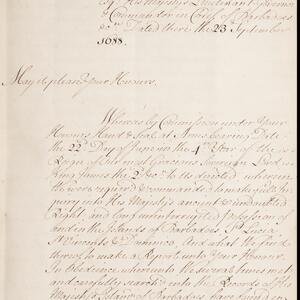 by His Majestys Lieutenant Governor
Commander in Cheif of Barbados
Dated there the 23 September
1688.
May it please Your Honors.
Whereas by Commission under Your
Honours Hand & Seal at Arms bearing Date
the 22d Day of June in the 4th Year of the
Reign of Our most Gracious Sovereign Lord
King James the 2d &c. to Us directed wherein
We were required & commanded to make full In-
quiry into His Majesty's ancient & undoubted
Right, and
of
and in the Islands of Barbados, St Lucia
St Vincents & Dominico, And what We find
therein, to make a Report unto Your Honour.
In Obedience whereunto We several times met
and carefully search'd into the Records of His
Majesty's Island of Barbados